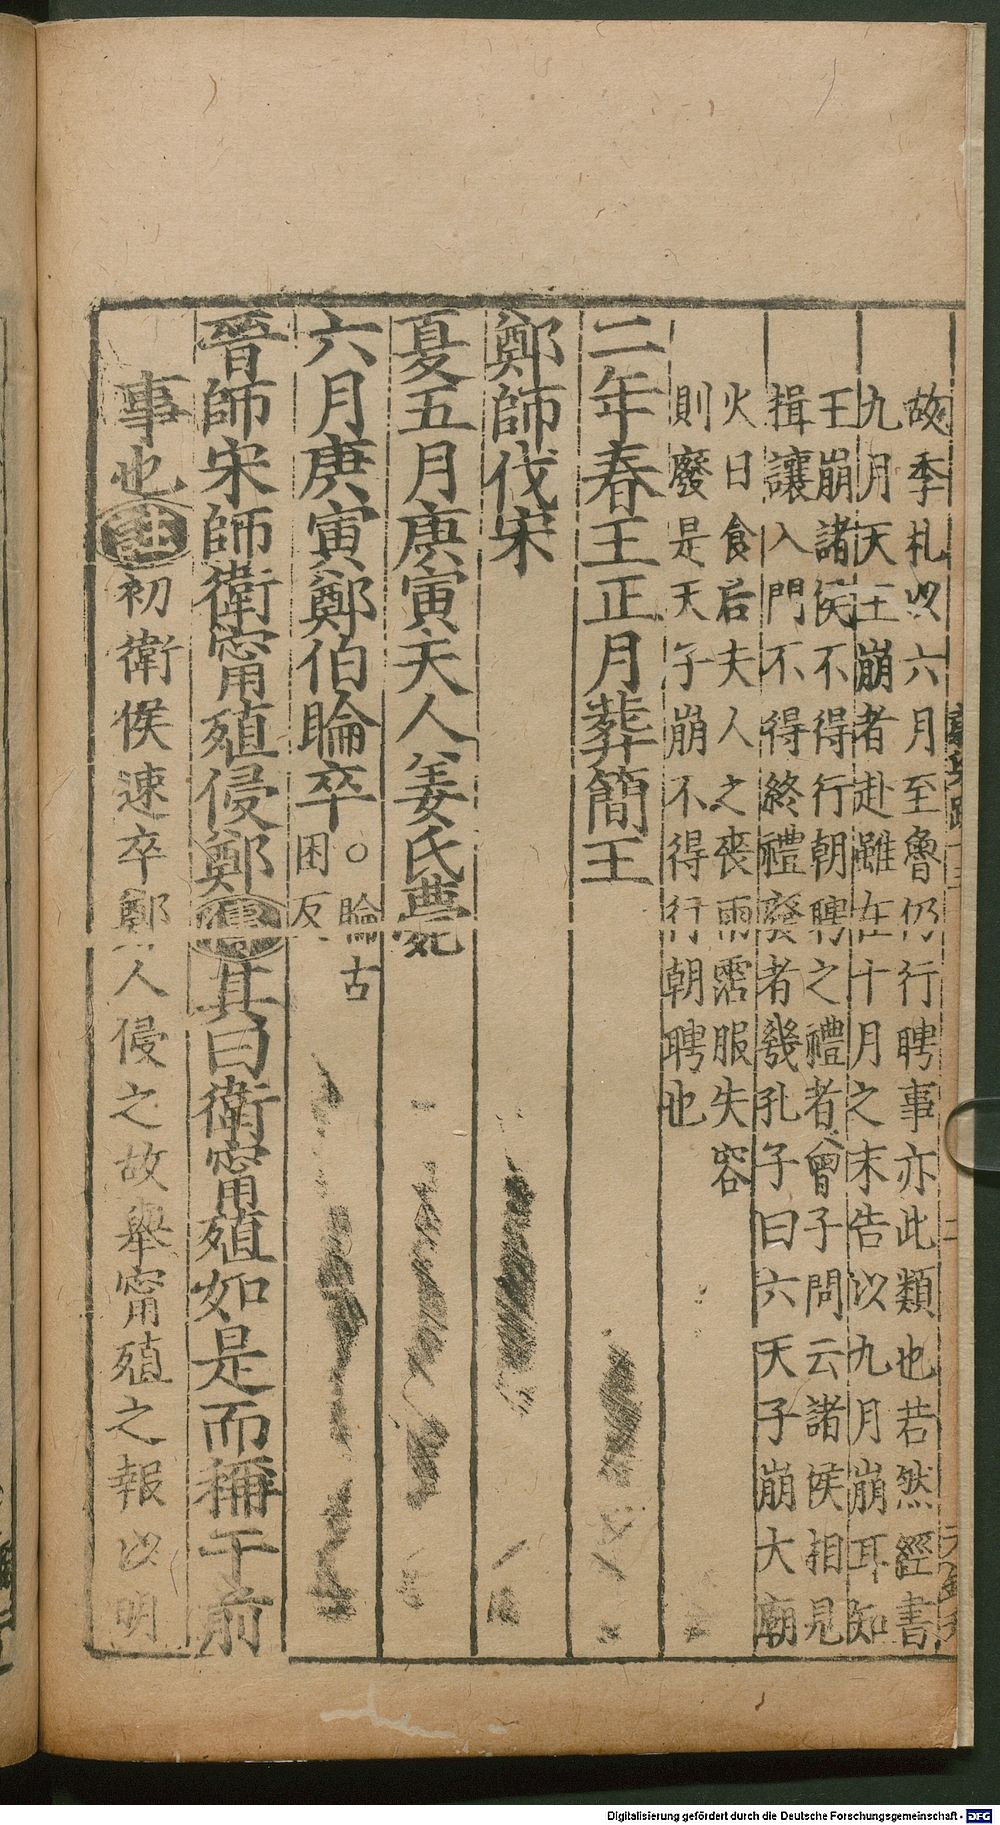 故季札以六月至魯仍行聘事亦此類也若然經書
九月天王崩者赴雖在十月之末告以九月崩耳知
王崩諸侯不得行朝聘之禮者曾子問云諸侯相見
揖讓入門不得終禮發者幾孔子曰六天子崩大廟
火日食后夫人之喪雨霑服失容
則廢是天子崩不得行朝聘也
二年春王正月葬簡王
鄭師伐宋
夏五月庚寅夫人姜氏薨
六月庚寅鄭伯睔卒○睔古
困反
晉師宋師衛甯殖侵鄭傳其曰衛甯殖如是而稱于前
事也註初衛侯速卒鄭人侵之故舉甯殖之報以明
Digitalisierung gefördert durch die Deutsche Forschungsgemeinschaft - DFG